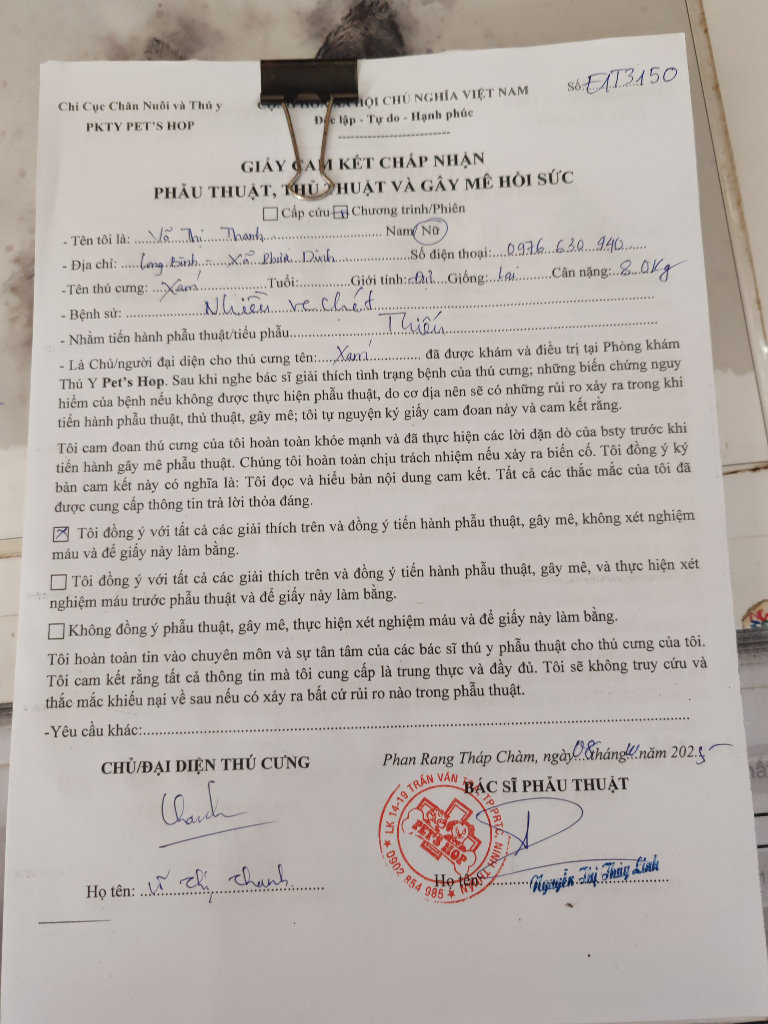 Chi Cục Chăn Nuôi và Thú y
PKTY PET'S HOP
HỘI CHỦ NGHĨA VIỆT NAM
Độc lập - Tự do - Hạnh phúc
Số: E1T3150
GIẤY CAM KẾT CHẤP NHẬN
PHẪU THUẬT, THỦ THUẬT VÀ GÂY MÊ HỒI SỨC
Cấp cứu Chương trình/Phiên
- Tên tôi là: Võ Thị Thanh Nam/ Nữ
- Địa chỉ: Long Bình - Xã Phước Dinh Số điện thoại: 0976 630 940
-Tên thú cưng: Xám Tuổi: Giới tính: Đực Giống: Lai Cân nặng: 8.0kg
- Bệnh sử: Nhiều ve chét
- Nhằm tiến hành phẫu thuật/tiểu phẫu Thiến
- Là Chủ/người đại diện cho thú cưng tên: Xám đã được khám và điều trị tại Phòng khám
Thú Y Pet's Hop. Sau khi nghe bác sĩ giải thích tình trạng bệnh của thú cưng; những biến chứng nguy
hiểm của bệnh nếu không được thực hiện phẫu thuật, do cơ địa nên sẽ có những rủi ro xảy ra trong khi
tiến hành phẫu thuật, thủ thuật, gây mê; tôi tự nguyện ký giấy cam đoan này và cam kết rằng.
Tôi cam đoan thú cưng của tôi hoàn toàn khỏe mạnh và đã thực hiện các lời dặn dò của bsty trước khi
tiến hành gây mê phẫu thuật. Chúng tôi hoàn toàn chịu trách nhiệm nếu xảy ra biến cố. Tôi đồng ý ký
bản cam kết này có nghĩa là: Tôi đọc và hiểu bản nội dung cam kết. Tất cả các thắc mắc của tôi đã
được cung cấp thông tin trả lời thỏa đáng.
Tôi đồng ý với tất cả các giải thích trên và đồng ý tiến hành phẫu thuật, gây mê, không xét nghiệm
máu và để giấy này làm bằng.
Tôi đồng ý với tất cả các giải thích trên và đồng ý tiến hành phẫu thuật, gây mê, và thực hiện xét
nghiệm máu trước phẫu thuật và để giấy này làm bằng.
Không đồng ý phẫu thuật, gây mê, thực hiện xét nghiệm máu và để giấy này làm bằng.
Tôi hoàn toàn tin vào chuyên môn và sự tân tâm của các bác sĩ thú y phẫu thuật cho thú cưng của tôi.
Tôi cam kết rằng tất cả thông tin mà tôi cung cấp là trung thực và đầy đủ. Tôi sẽ không truy cứu và
thắc mắc khiếu nại về sau nếu có xảy ra bất cứ rủi ro nào trong phẫu thuật.
-Yêu cầu khác:
Phan Rang Tháp Chàm, ngày 08 tháng năm 2025
CHỦ/ĐẠI DIỆN THÚ CƯNG
BÁC SĨ PHẪU THUẬT
Thanh
LK 14-19 TRẦN VĂN TP.PRTC. NINH THUẬN
PET'S HOP
0902 854 985
Họ tên: Võ Thị Thanh
Họ tên: Nguyễn Thị Thùy Linh